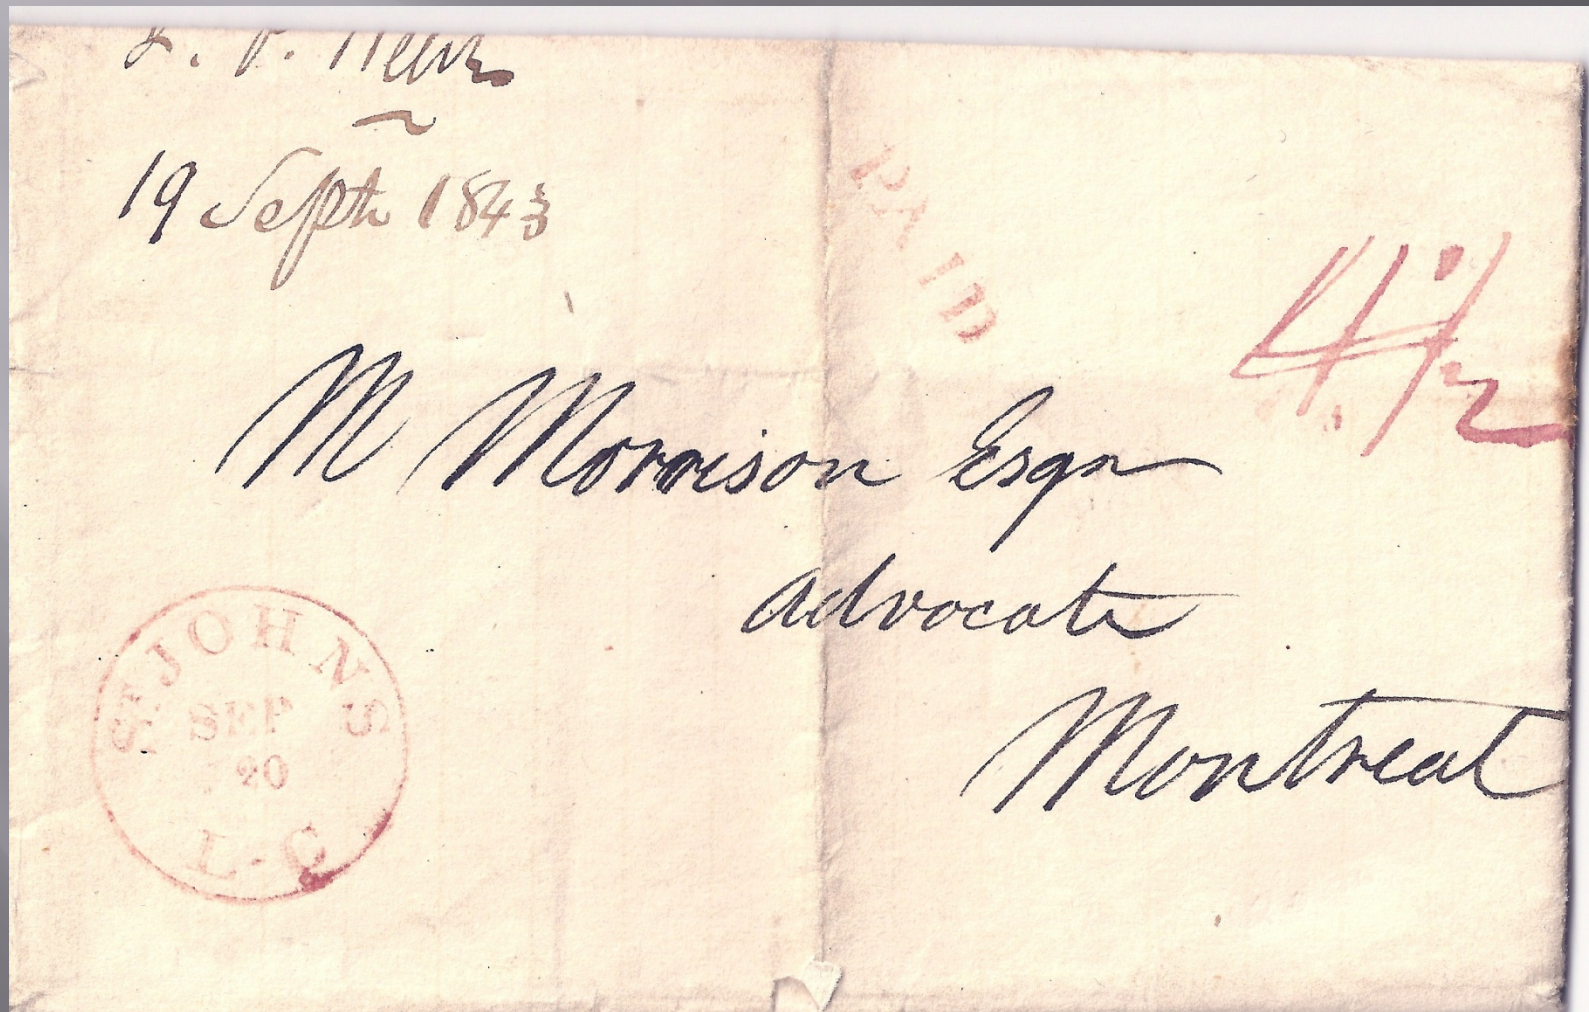 19 Septr 1843
PAID
4 1/2
M Morrison Esqr
Advocate
Montreal
ST JOHNS
SEP
20
L.C